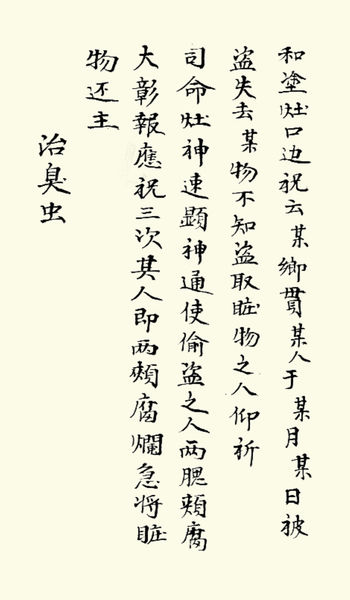 和塗灶口边祝云某鄉貫某人于某月某日被
盗失去某物不知盗取賍物之人仰祈
司命灶神速顕神通使偷盗之人两腮頰腐
大彰報應祝三次其人即两頰腐爛急将賍
物还主
治臭虫